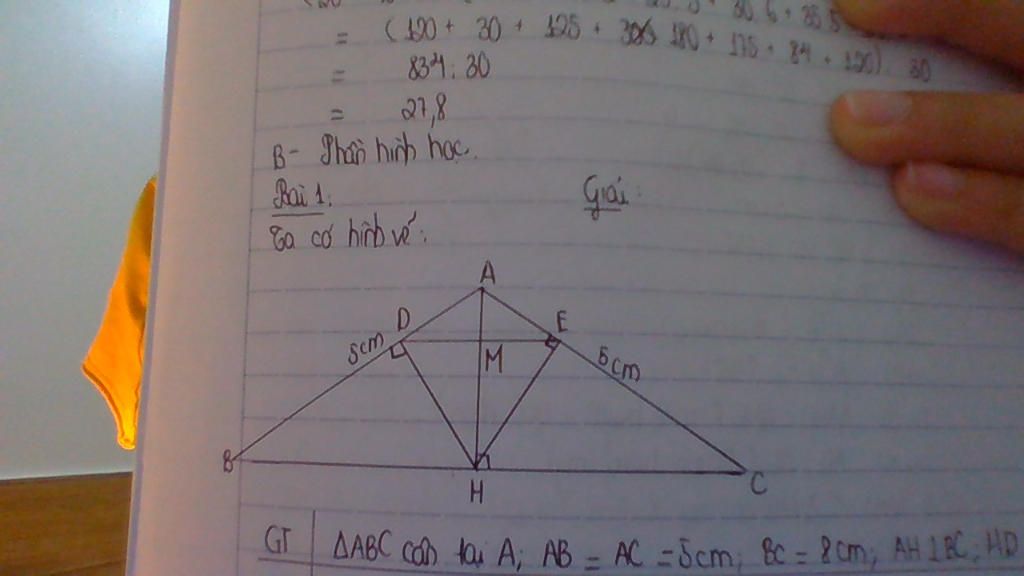 = (120 + 30 + 125 + 180 + 175 + 84 + 120) : 30
= 834 : 30
= 27,8
B- Phần hình học.
Bài 1:
Giải:
Ta có hình vẽ:
A
D
E
5cm
M
5cm
B
H
C
GT
ΔABC cân tại A; AB = AC = 5cm; BC = 8cm; AH ⊥ BC; HD